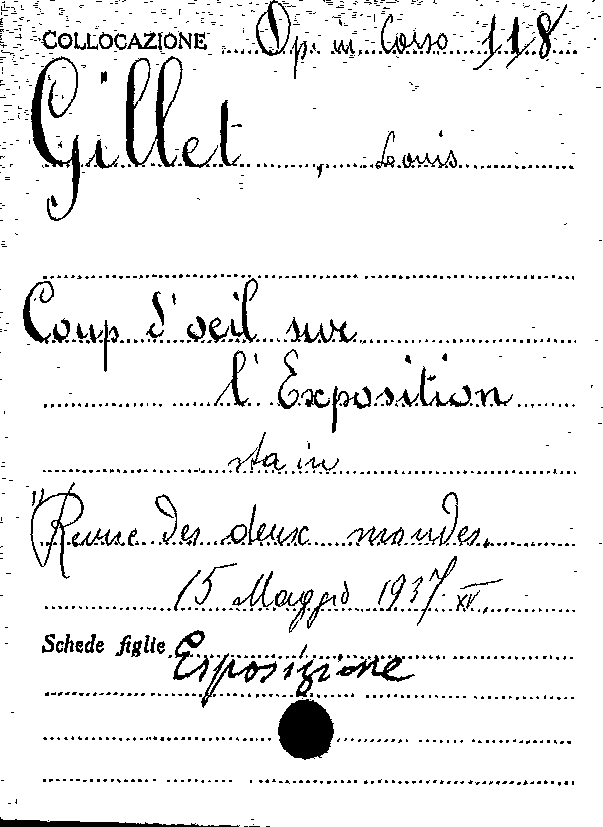 COLLOCAZIONE Op. in Corso 118
Gillet, Louis
Coup d'oeil sur
l'Exposition
sta in
"Revue des deux mondes.
15 Maggio 1937. XV.
Schede figlie Esposizione